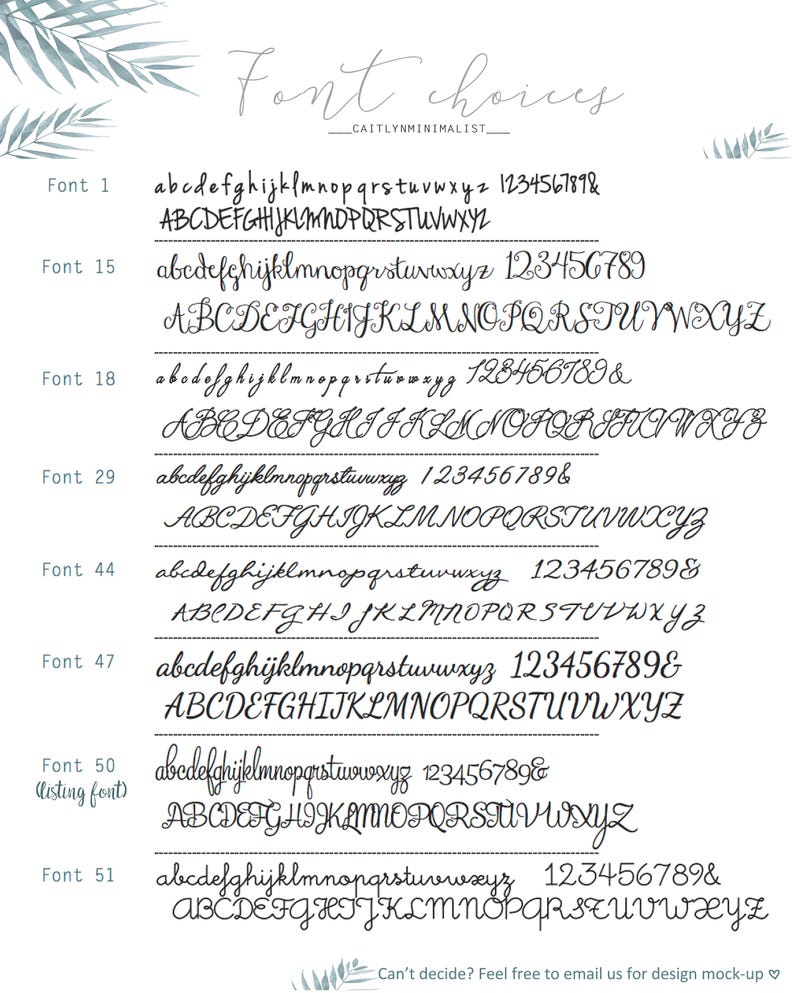 Font choices
___CAITLYNMINIMALIST___
Font 1
abcdefghijklmnopqrstuvwxyz 123456789&
ABCDEFGHIJKLMNOPQRSTUVWXYZ
Font 15
abcdefghijklmnopqrstuvwxyz 123456789
ABCDEFGHIJKLMNOPQRSTUVWXYZ
Font 18
abcdefghijklmnopqrstuvwxyz 123456789&
ABCDEFGHIJKLMNOPQRSTUVWXYZ
Font 29
abcdefghijklmnopqrstuvwxyz 123456789&
ABCDEFGHIJKLMNOPQRSTUVWXYZ
Font 44
abcdefghijklmnopqrstuvwxyz 123456789&
ABCDEFGHIJKLMNOPQRSTUVWXYZ
Font 47
abcdefghijklmnopqrstuvwxyz 123456789&
ABCDEFGHIJKLMNOPQRSTUVWXYZ
Font 50
(listing font)
abcdefghijklmnopqrstuvwxyz 123456789&
ABCDEFGHIJKLMNOPQRSTUVWXYZ
Font 51
abcdefghijklmnopqrstuvwxyz 123456789&
ABCDEFGHIJKLMNOPQRSTUVWXYZ
Can't decide? Feel free to email us for design mock-up ♡